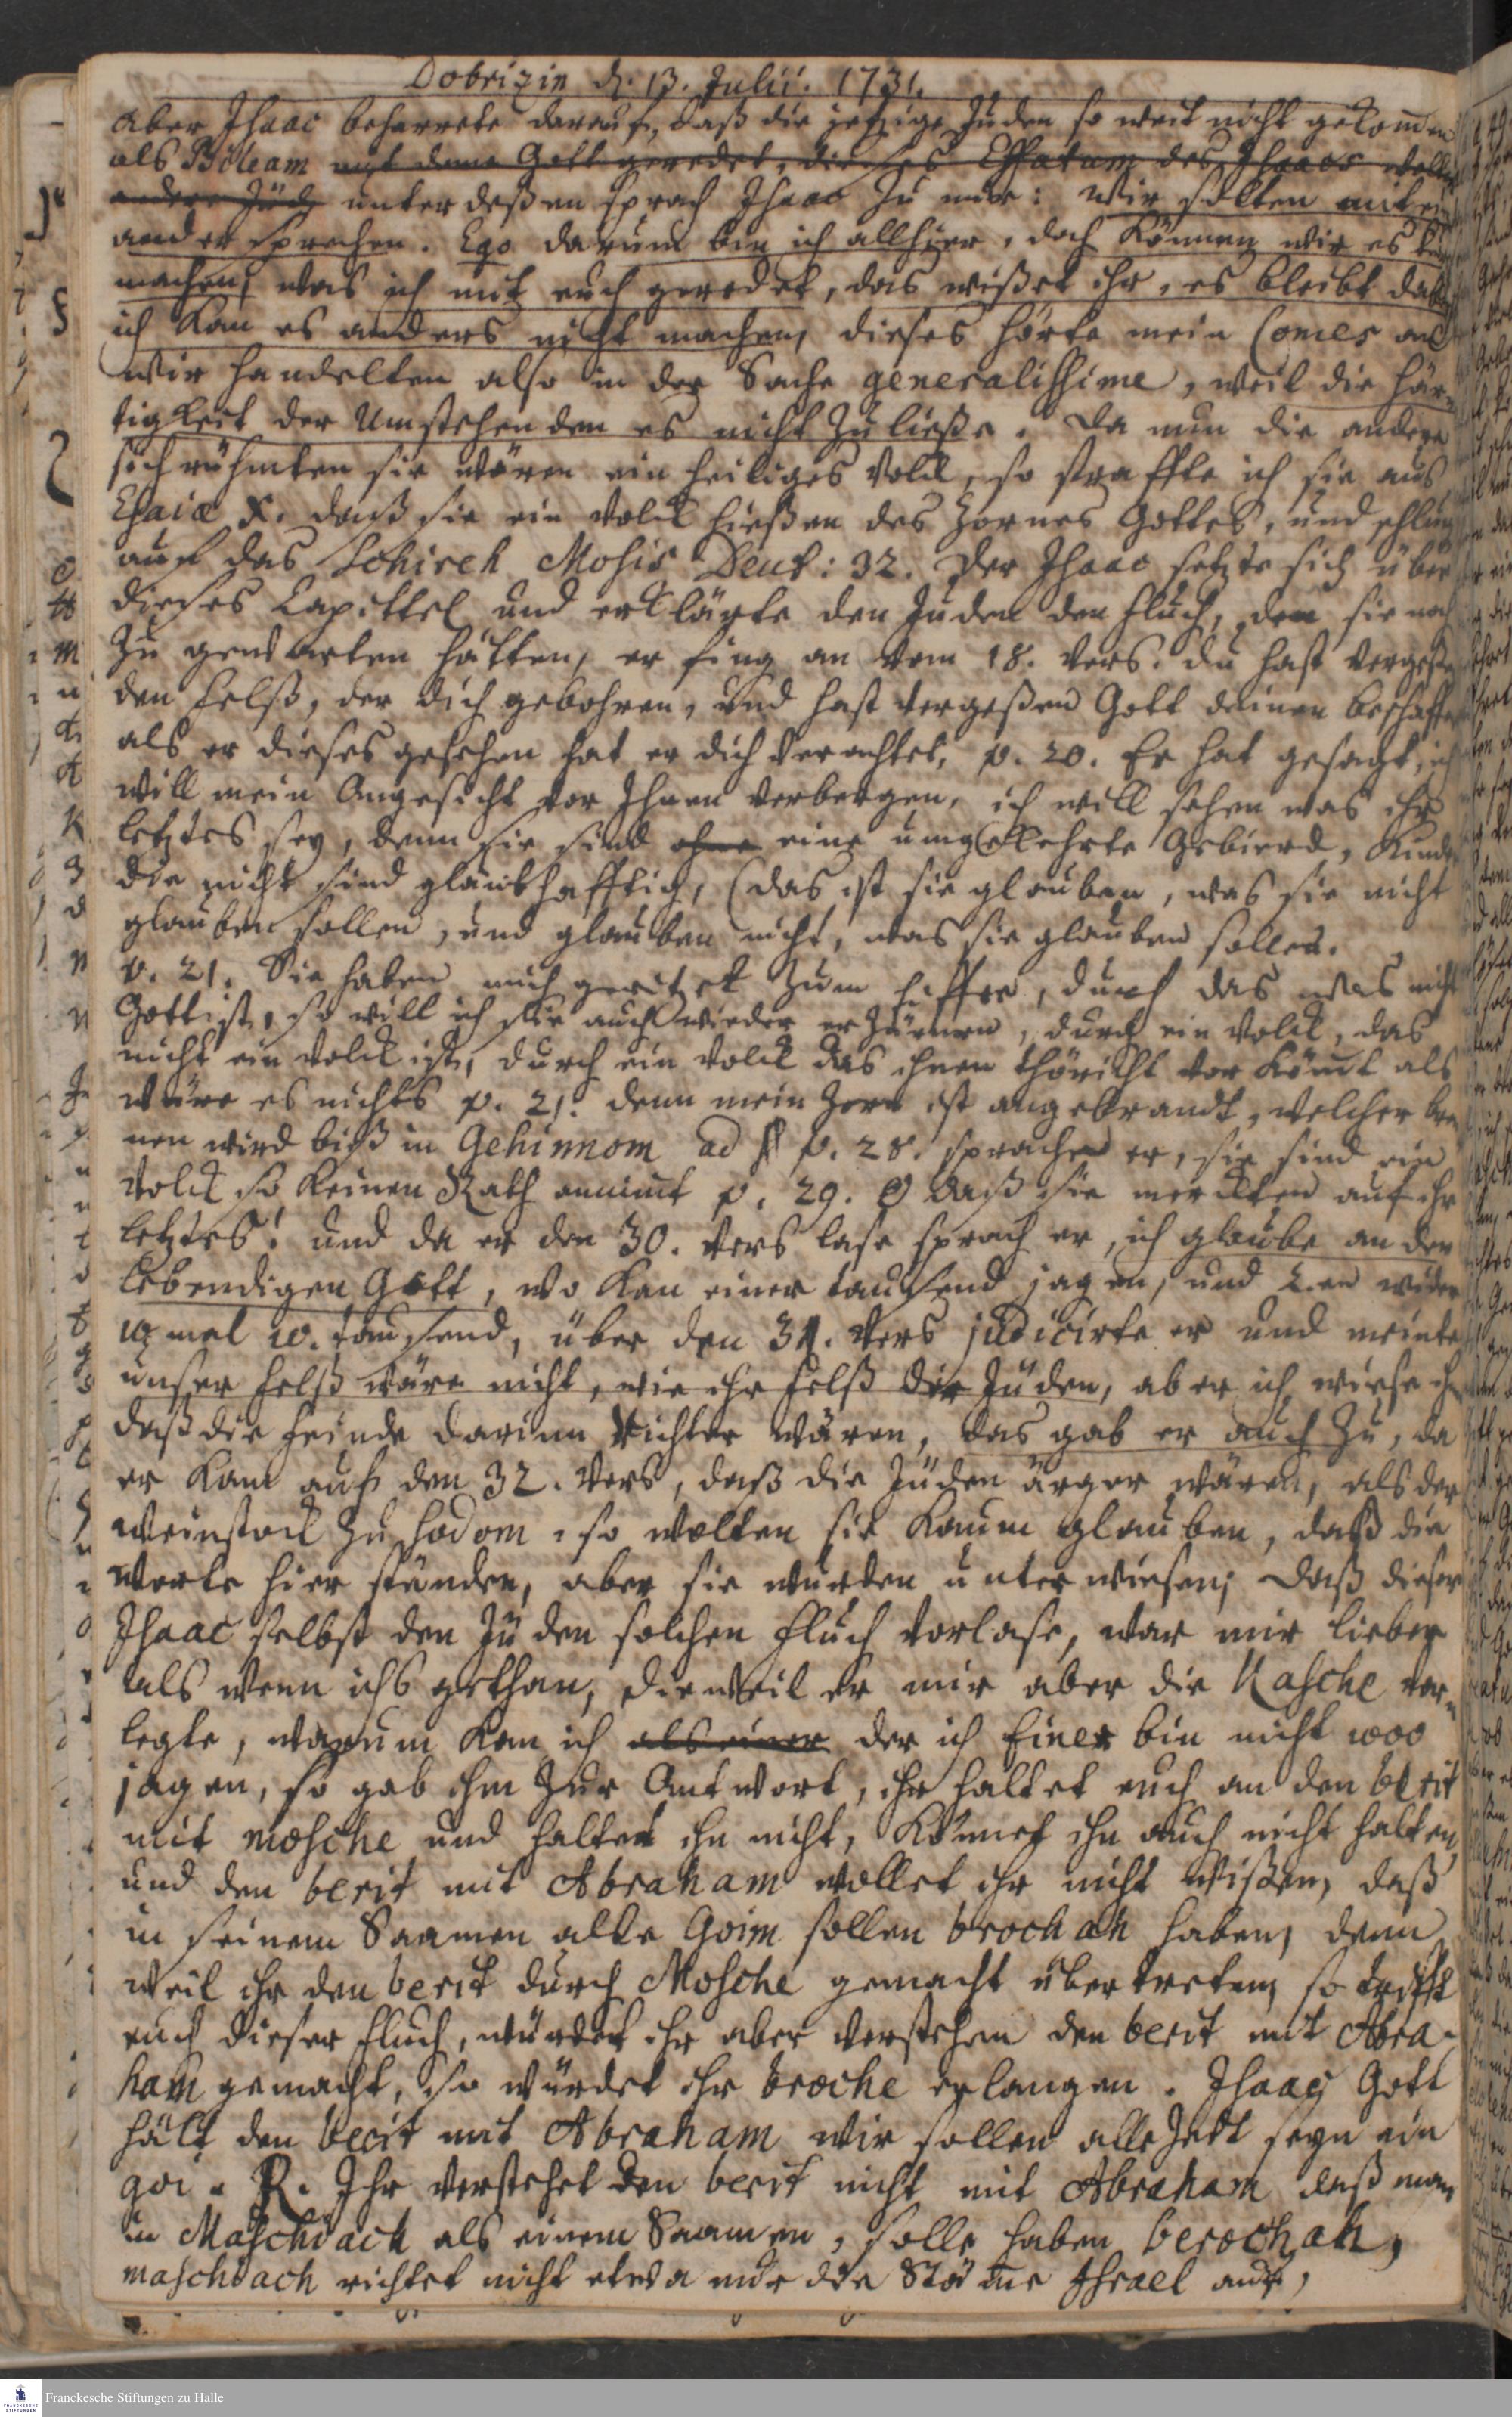 Dobrizin d. 13. Julii. 1731.
aber Isaac beharrete darauf, daß die jetzige Juden so weit nicht gekommen
als Bileam mit deme Gott geredet, dieses Effatum des Isaacs
andere Jüd unterdeßen sprach Isaac zu mir: Wir solten mit ein
ander sprechen. Ego darum bin ich allhier, doch können wir es
machen, was ich mit euch geredet, das wißet ihr, es bleibt dabey
ich kan es anders nicht machen, dieses hörte mein Comes an
Wir handelten also in der Sache generalissime, weil die
tigkeit der Umstehenden es nicht zuließe. Da nun die andere
sich rühmten sie wären ein heiliges Volck, so straffte ich sie aus
Esaiæ X. daß sie ein Volck hießen des Zornes Gottes, und schlug
auf das Schireh Mosis Deut: 32. Der Isaac setzte sich über
dieses Capittel und erklärte den Juden den Fluch, den sie noch
zu gewarten hätten, er fing an vom 18. Vers. du hast vergeßen
den Felß, der dich gebohren, und hast vergeßen Gott deinen beschaffer
als er dieses gesehen hat er dich verachtet, v. 20. Er hat gesagt, ich
will mein Angesicht vor Ihnen verbergen, ich will sehen was ihr
letztes sey, denn sie sind ohne eine umgekehrte Gebierd, Kinder
die nicht sind glaubhafftig, (das ist sie glauben, was sie nicht
glauben sollen, und glauben nicht, was sie glauben sollen.
v. 21. Sie haben mich gereitzet zum Eiffer, durch das was nicht
Gott ist, so will ich sie auch wieder erzürnen, durch ein Volck, das
nicht ein Volck ist, durch ein Volck das ihnen thöricht vor kömt als
wäre es nichts v. 21. denn mein Zorn ist angebrandt, welcher bren
nen wird biß in Gehinnom ad v. 28. sprache er, sie sind ein
Volck so keinen Rath annimt v. 29. O daß sie merckten auf ihr
letztes! und da er den 30. Vers lase sprach er, ich glaube an den
lebendigen Gott, wo kan einer tausend jagen, und 2. en wider
10 mal 10. tausend, über den 31. Vers judicirte er und meinte
unser Felß wäre nicht, wie ihr Felß der Jüden, aber ich wiese ihm
daß die Feinde darinn Richter wären, das gab er auch zu, da
er kam auf den 32. Vers, daß die Jüden ärger wären, als der
Weinstock zu Sodom, so wolten sie kaum glauben, daß die
Worte hier stünden, aber sie wurden unterwiesen; daß dieser
Isaac selbst den Jüden solchen Fluch vorlase, war mir lieber
als wenn ichs gethan, dieweil er mir aber die Kasche vor
legte, warum kan ich als einer der ich Einer bin nicht 1000
jagen, so gab ihm zur Antwort, ihr haltet euch an den berit
mit mosche und haltet ihn nicht, könnet ihn auch nicht halten,
und den berit mit Abraham wollet ihr nicht wißen, daß
in seinem Saamen alle Goim sollen brochah haben, denn
weil ihr den berit durch Mosche gemacht übertreten, so trifft
euch dieser Fluch, würdet ihr aber verstehen den berit mit Abra-
ham gemacht, so würdet ihr broche erlangen. Isaac Gott
hält den berit mit Abraham wir sollen allezeit seyn ein
goi. R. Ihr verstehet den berit nicht mit Abraham daß man
in Maschiach als einem Saamen, solle haben berochah,
maschiach richtet nicht etwa nur die Stämme Israel auf,
Franckesche Stiftungen zu Halle